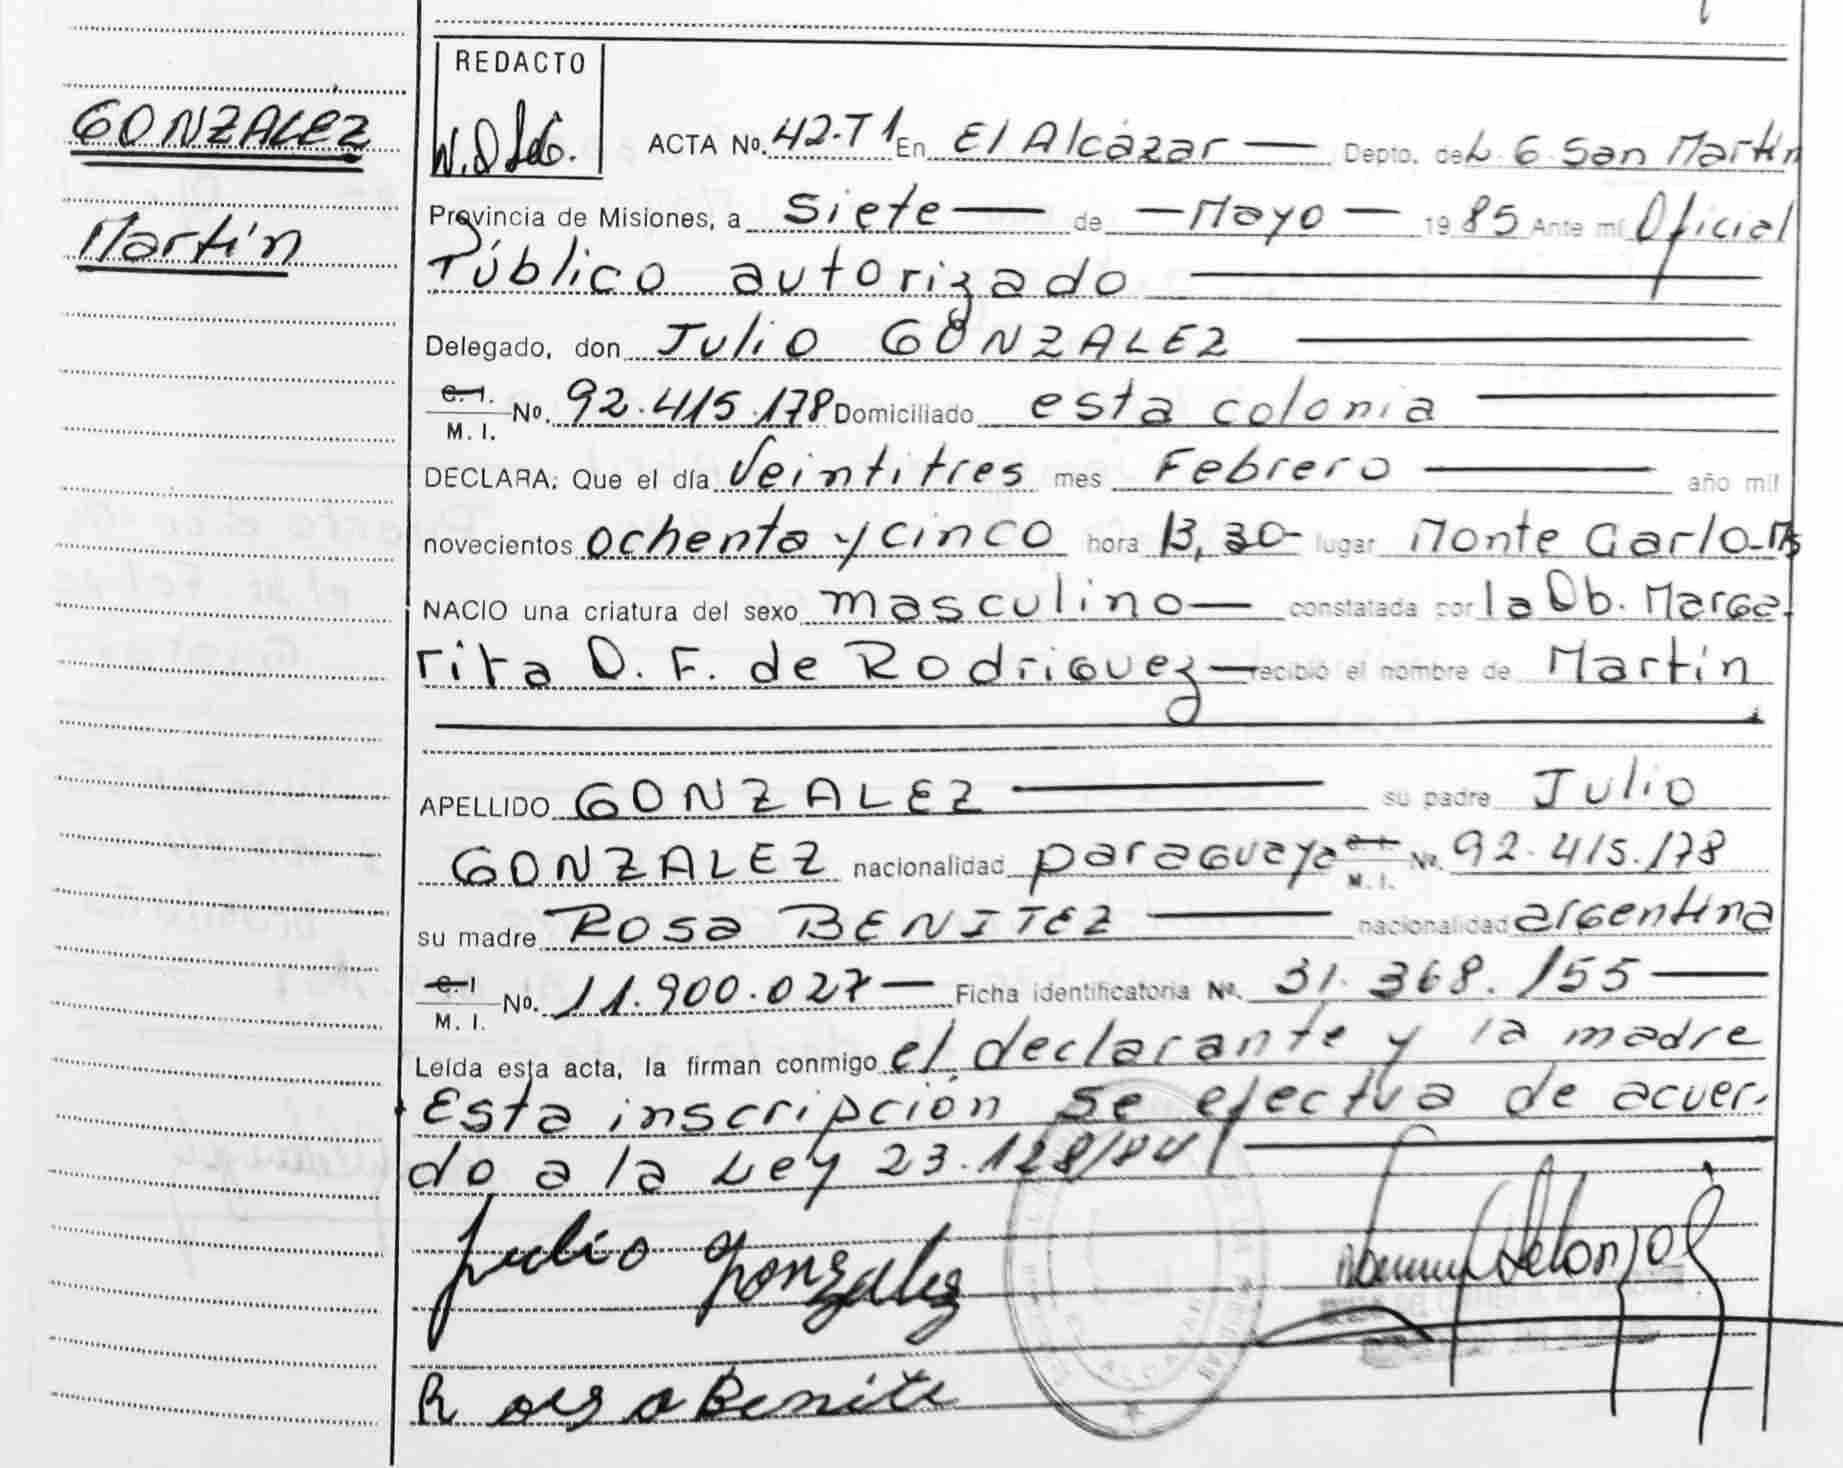 REDACTO
GONZALEZ
Martín
ACTA No. 42-T1 En El Alcázar — Depto. de L. G. San Martín
Provincia de Misiones, a siete — de — Mayo — 1985 Ante mí Oficial
Público autorizado
Delegado, don Julio GONZALEZ
C. I. M. I. No. 92.415.178 Domiciliado esta colonia
DECLARA: Que el día Veintitres mes Febrero — año mil
novecientos ochenta y cinco hora 13,30- lugar Monte Carlo-Ms
NACIO una criatura del sexo masculino — constatada por la Ob. Marga-
rita D. F. de Rodriguez — recibió el nombre de Martín
APELLIDO GONZALEZ — su padre Julio
GONZALEZ nacionalidad paraguaya C. I. M. I. No. 92.415.178
su madre Rosa BENITEZ — nacionalidad argentina
C. I. M. I. No. 11.900.027 — Ficha identificatoria No. 31.368.155 —
Leída esta acta, la firman conmigo el declarante y la madre
Esta inscripción se efectua de acuer-
do a la Ley 23.128/84
Julio Gonzalez
Rosa Benite